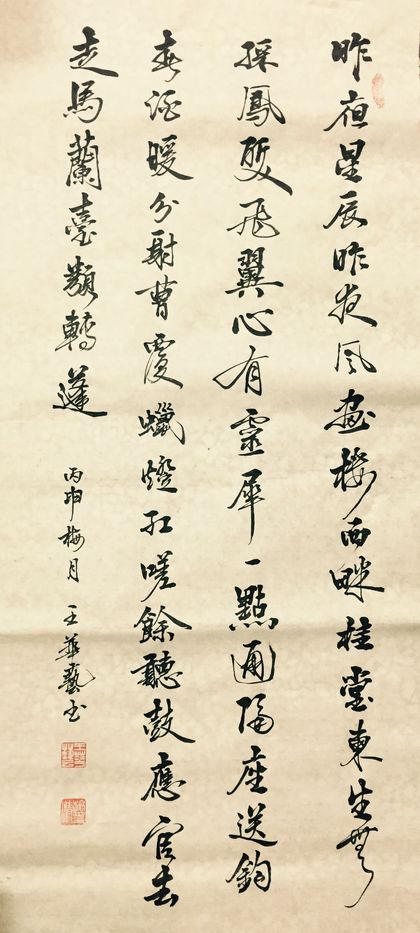 昨夜星辰昨夜风畫樓西畔桂堂東身無
採鳳雙飛翼心有靈犀一點通隔座送鈎
春酒暖分射曹覆蠟燈紅嗟餘聽鼓應官去
走馬蘭臺類轉蓬
丙申梅月 王華藝书